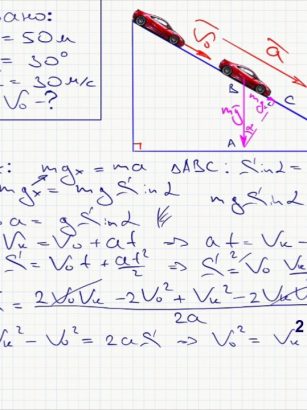 ано:
= 50м
= 30°
= 30 м/с
V₀ - ?
V₀
a
B
C
mg
mgₓ
α
A
: mgₓ = ma ΔABC: Sin α =
mgₓ = mg Sin α mg Sin α
a = g Sin α
Vₖ = V₀ + at ⇒ at = Vₖ -
S = V₀t + at²/2 ⇒ S = V₀ Vₖ
= 2V₀Vₖ - 2V₀² + Vₖ² - 2Vₖ
2a
ₖ² - V₀² = 2aS ⇒ V₀² = Vₖ
2